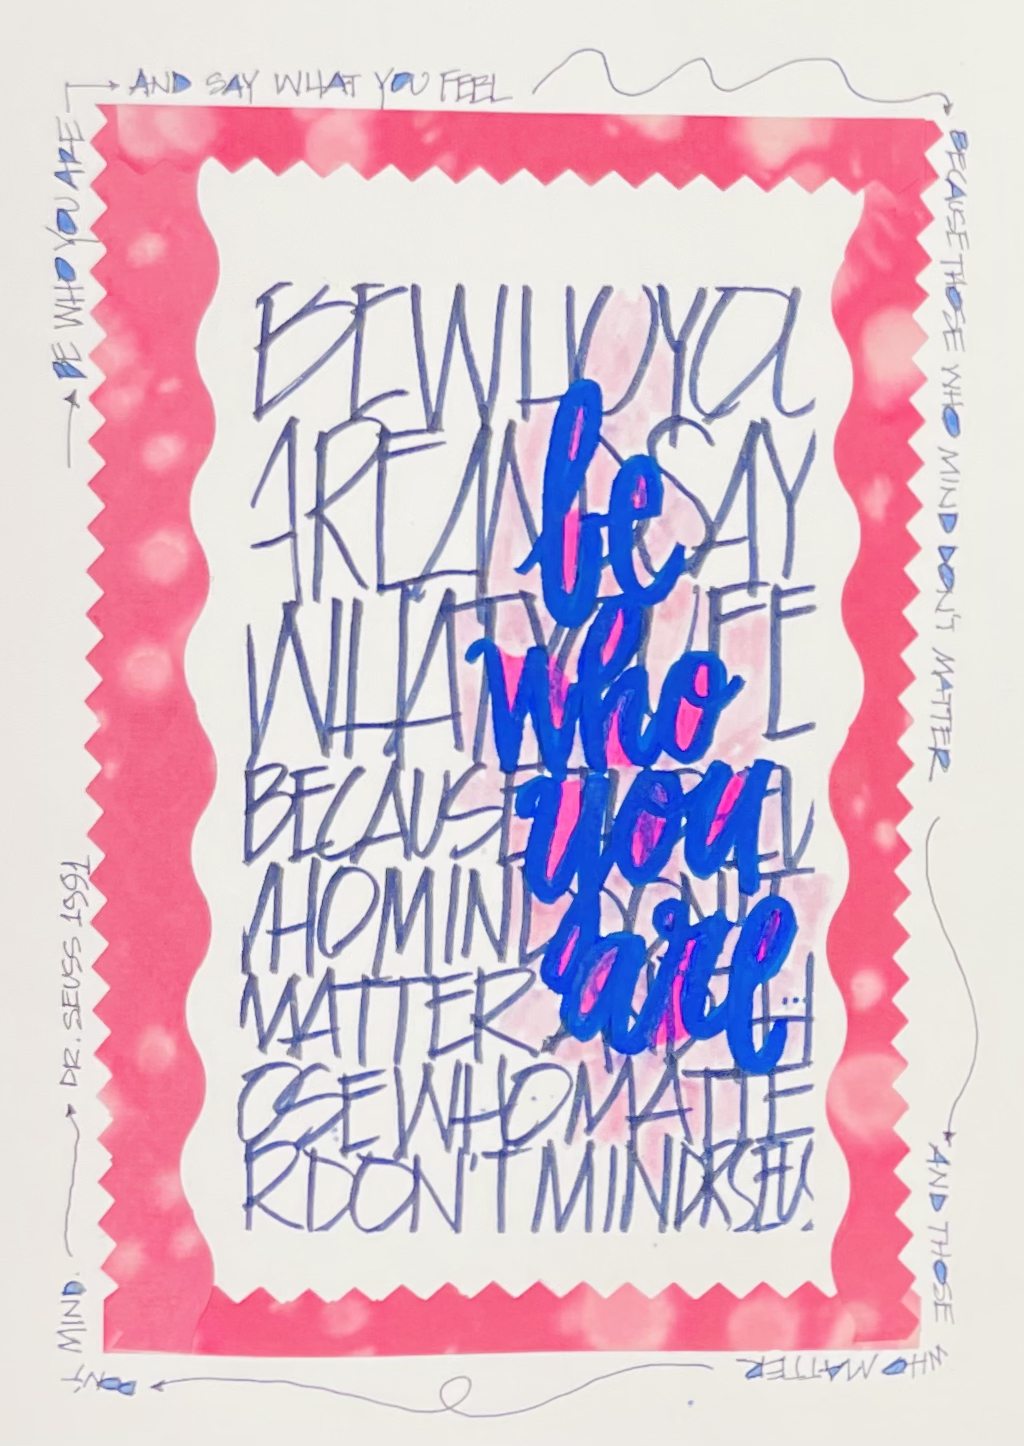 BE WHO YOU ARE
AND SAY WHAT YOU FEEL
BECAUSE THOSE WHO MIND DON'T MATTER
AND THOSE
WHO MATTER
DON'T
MIND.
DR. SEUSS 1991
BEWHOYOU
AREANDSAY
WHATYOUFEE
BECAUSE
WHOMIND DON'T
MATTER AND TH
OSEWHOMATTE
RDON'TMINDDRSEUS
be
who
you
are